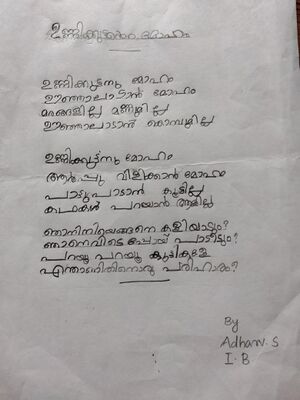 ഉണ്ണിക്കുട്ടന്റെ മോഹം
ഉണ്ണിക്കുട്ടനു മോഹം
ഊഞ്ഞാലാടാൻ മോഹം
മരങ്ങളില്ല മണ്ണുമില്ല
ഊഞ്ഞാലാടാൻ കൊമ്പുമില്ല
ഉണ്ണിക്കുട്ടനു മോഹം
ആർപ്പു വിളിക്കാൻ മോഹം
പാട്ടുപാടാൻ കൂട്ടില്ല
കഥകൾ പറയാൻ ആളില്ല
ഞാനിനിയെങ്ങനെ കളിയാടും?
ഞാനെവിടെപ്പോയ് പാടീടും?
പറയൂ പറയൂ കൂട്ടുകാരേ
എന്താണിതിനൊരു പരിഹാരം?
By
Adharv. S
I. B